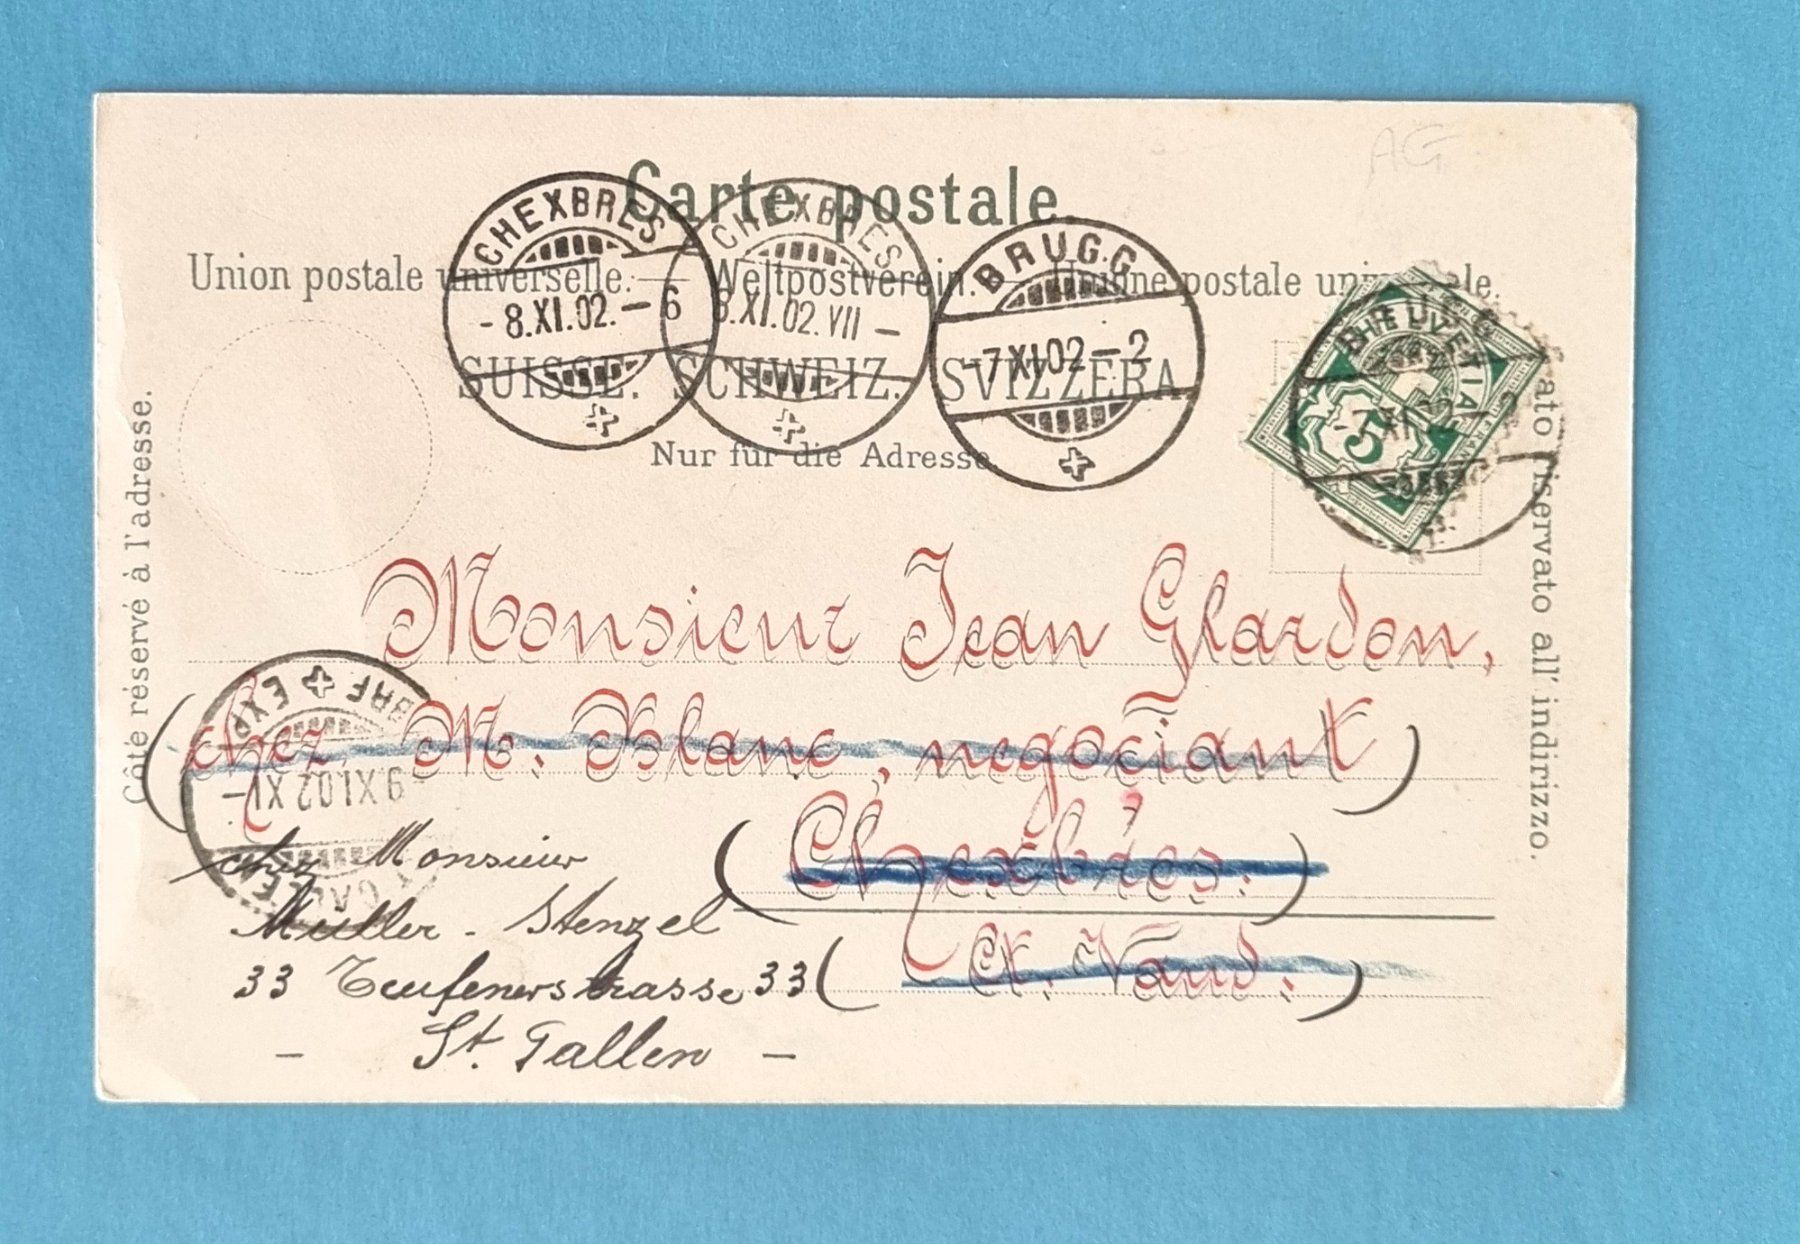 AG
Carte postale.
Union postale universelle. — Weltpostverein. — Unione postale universale.
SUISSE. SCHWEIZ. SVIZZERA.
Nur für die Adresse.
Côté réservé à l'adresse.
Lato riservato all' indirizzo.
CHEXBRES
- 8.XI.02. - 6
CHEXBRES
8.XI.02.VII -
BRUGG
- 7.XI.02 - 2
HELVETIA
5
BRUGG
- 7.XI.02 - 2
Monsieur Jean Glardon,
(chez M. Blanc, négociant)
(Chexbres.)
(Ct. Vaud.)
ST GALLEN
9.XI.02.XI -
BRF EXP
chez Monsieur
Muller - Stenzel
33 Teufenerstrasse 33
- St. Gallen -